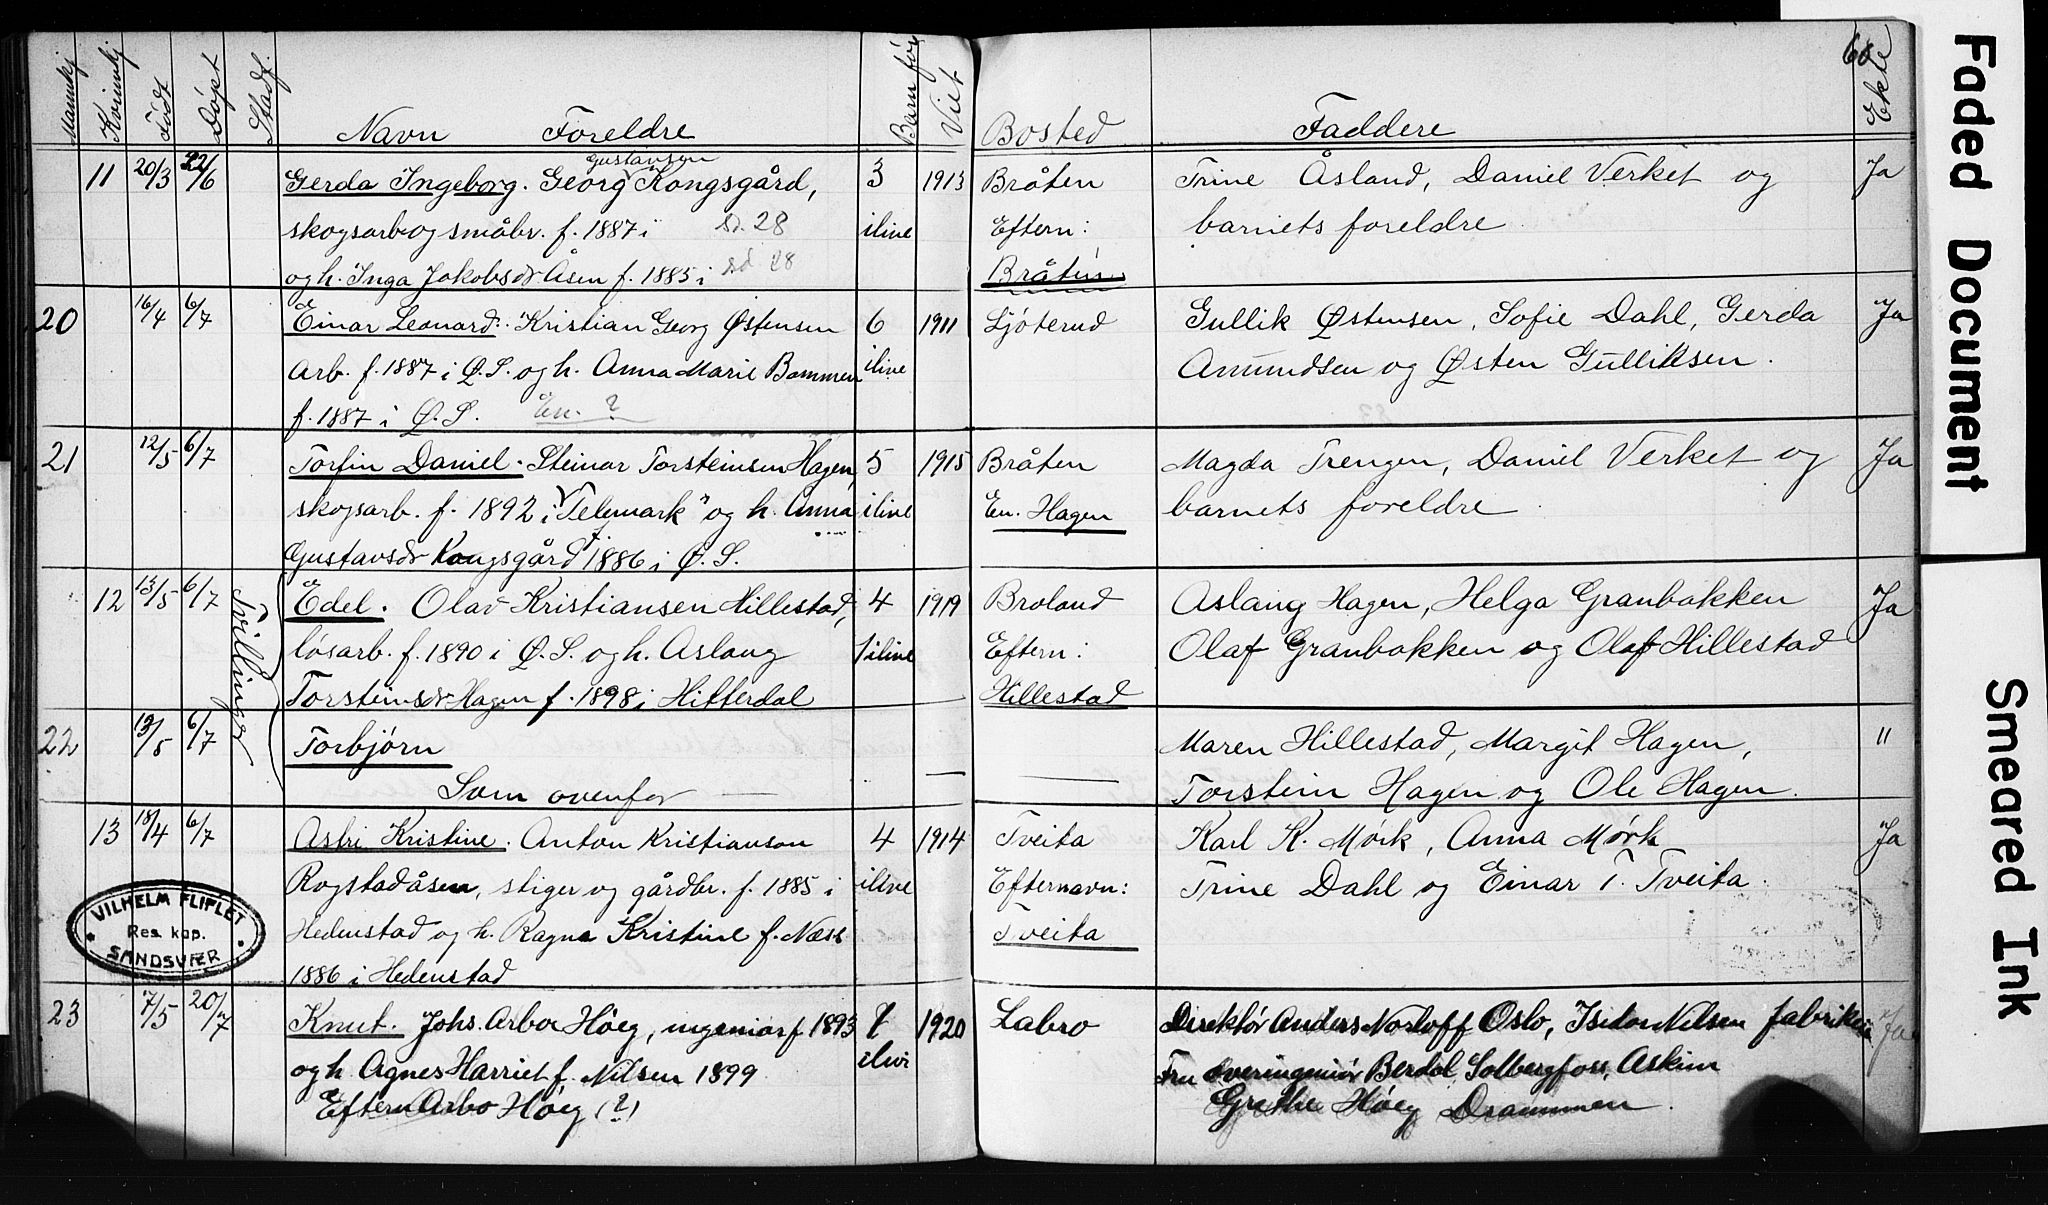 Mannkj Kvinnkj Født Døpt Stadf. Navn Foreldre Barn før Viet Bosted Faddere Ekte
11 20/3 22/6 Gerda Ingeborg. Georg Gustavsen Kongsgård, 3 1913 Bråten Trine Åsland, Daniel Verket og Ja
skogsarb og småbr. f. 1887 i Sd. 28 i live Eftern: barnets foreldre
og h. Inga Jakobsdr Åsen f. 1885 i sd 28 Bråten
20 16/4 6/7 Einar Leonard. Kristian Georg Østensen 6 1911 Ljøterud Gullik Østensen, Sofie Dahl, Gerda Ja
Arb. f. 1887 i Ø. S. og h. Anna Marie Bommen i live Amundsen og Østen Gulliksen.
f. 1887 i Ø. S. En. ?
21 12/5 6/7 Torfin Daniel. Steinar Torsteinsen Hagen, 5 1915 Bråten Magda Trengen, Daniel Verket og Ja
skogsarb. f. 1892 i "Telemark" og h. Anna i live En. Hagen barnets foreldre
Gustavsdr Kongsgård f 1886 i Ø. S.
12 13/5 6/7 Tvillinger Edel. Olav Kristiansen Hillestad, 4 1919 Broland Aslaug Hagen, Helga Granbakken Ja
løsarb. f. 1890 i Ø. S. og h. Aslaug 1 i live Eftern: Olaf Granbakken og Olaf Hillestad
Torsteinsdr Hagen f. 1898 i Hitterdal Hillestad
22 13/5 6/7 Torbjørn Maren Hillestad, Margit Hagen, "
Som ovenfor — — — Torstein Hagen og Ole Hagen.
13 18/4 6/7 Astri Kristine. Anton Kristianson 4 1914 Tveita Karl K. Mørk, Anna Mørk Ja
Rogstadåsen, stiger og gårdbr. f. 1885 i i live Efternavn: Trine Dahl og Einar T. Tveita.
VILHELM FLIFLET
Res. kap.
SANDSVÆR
Hedenstad og h. Ragna Kristine f. Næss Tveita
1886 i Hedenstad
23 7/5 20/7 Knut. Johs. Arbo Høeg, ingeniør f 1893 1920 Labro Direktør Anders Norloff Oslo, Isidor Nilsen Ja
og h. Agnes Harriet f. Nilsen 1899 i live Fru overingeniør Berdal, Solbergfoss, Askim
Eftern Arbo Høeg (?) Grethe Høeg Drammen.
Faded Document
Smeared Ink